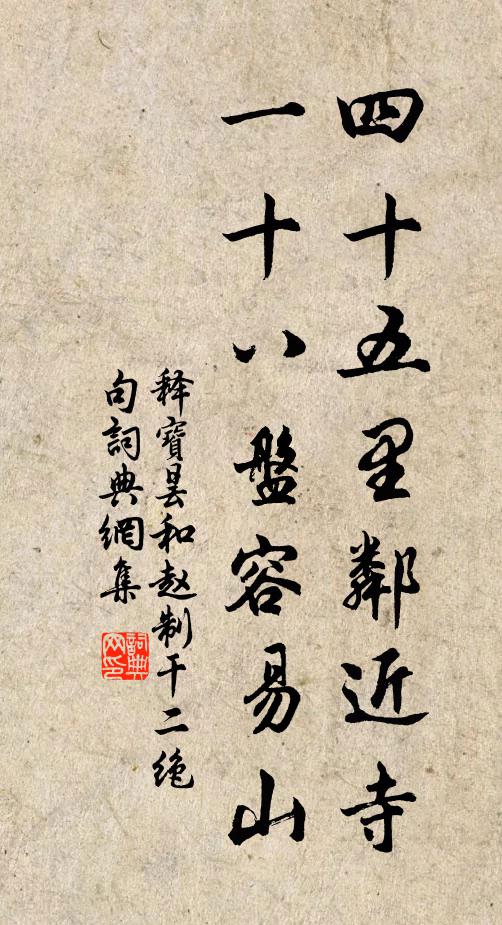 四十五里鄰近寺
一十八盤容易山
释寶曇和赵制干二绝
句詞典網集
詞典网印